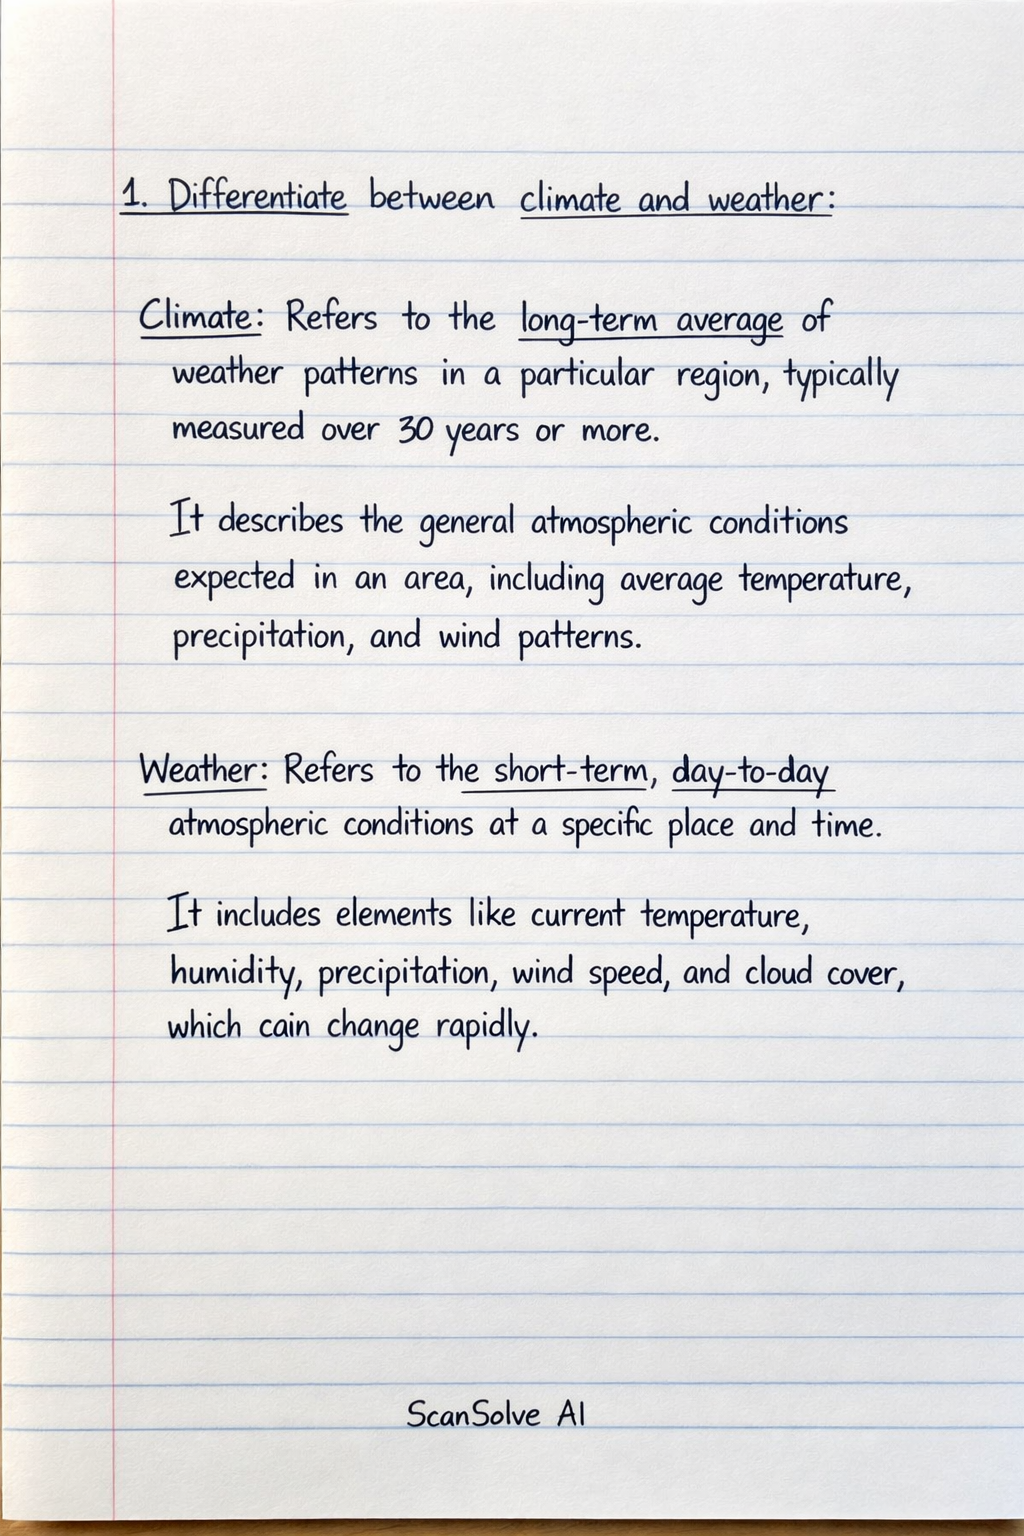 1. Differentiate between climate and weather:
Climate: Refers to the long-term average of
weather patterns in a particular region, typically
measured over 30 years or more.
It describes the general atmospheric conditions
expected in an area, including average temperature,
precipitation, and wind patterns.
Weather: Refers to the short-term, day-to-day
atmospheric conditions at a specific place and time.
It includes elements like current temperature,
humidity, precipitation, wind speed, and cloud cover,
which cain change rapidly.
ScanSolve AI